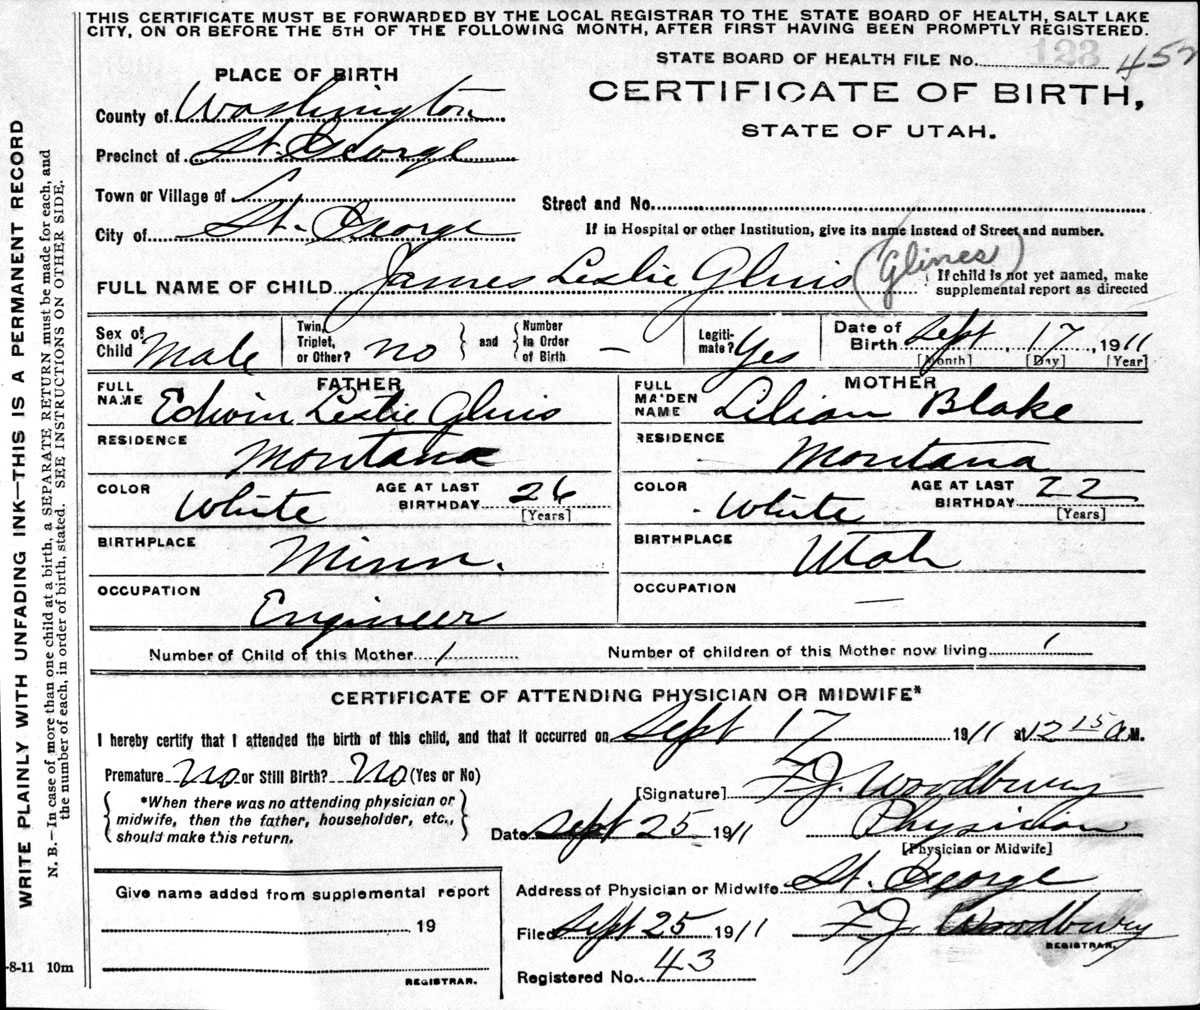 THIS CERTIFICATE MUST BE FORWARDED BY THE LOCAL REGISTRAR TO THE STATE BOARD OF HEALTH, SALT LAKE
CITY, ON OR BEFORE THE 5TH OF THE FOLLOWING MONTH, AFTER FIRST HAVING BEEN PROMPTLY REGISTERED.
STATE BOARD OF HEALTH FILE No. 123 457
PLACE OF BIRTH
CERTIFICATE OF BIRTH,
STATE OF UTAH.
County of Washington
Precinct of St. George
Town or Village of
City of St. George
Street and No.
If in Hospital or other Institution, give its name instead of Street and number.
FULL NAME OF CHILD James Leslie Glinis (Glines)
If child is not yet named, make
supplemental report as directed
Sex of Child Male
Twin, Triplet, or Other? no and Number In Order of Birth –
Legiti-mate? Yes
Date of Birth Sept 17, 1911
[Month] [Day] [Year]
FATHER
FULL NAME Edwin Leslie Glinis
RESIDENCE
Montana
COLOR White AGE AT LAST BIRTHDAY 26
[Years]
BIRTHPLACE
Minn.
OCCUPATION
Engineer
MOTHER
FULL MAIDEN NAME Lilian Blake
RESIDENCE
Montana
COLOR White AGE AT LAST BIRTHDAY 22
[Years]
BIRTHPLACE Utah
OCCUPATION —
Number of Child of this Mother 1 Number of children of this Mother now living 1
CERTIFICATE OF ATTENDING PHYSICIAN OR MIDWIFE*
I hereby certify that I attended the birth of this child, and that it occurred on Sept 17 1911 at 12 15 a M.
Premature No or Still Birth? No (Yes or No)
*When there was no attending physician or
midwife, then the father, householder, etc.,
should make this return.
[Signature] F.J. Woodbury
Date Sept 25 1911 Physician
[Physician or Midwife]
Give name added from supplemental report
19
REGISTRAR.
Address of Physician or Midwife St. George
Filed Sept 25 1911 F.J. Woodbury
REGISTRAR.
Registered No. 43
WRITE PLAINLY WITH UNFADING INK—THIS IS A PERMANENT RECORD
N. B.—In case of more than one child at a birth, a SEPARATE RETURN must be made for each, and
the number of each, in order of birth, stated. SEE INSTRUCTIONS ON OTHER SIDE.
-8-11 10m